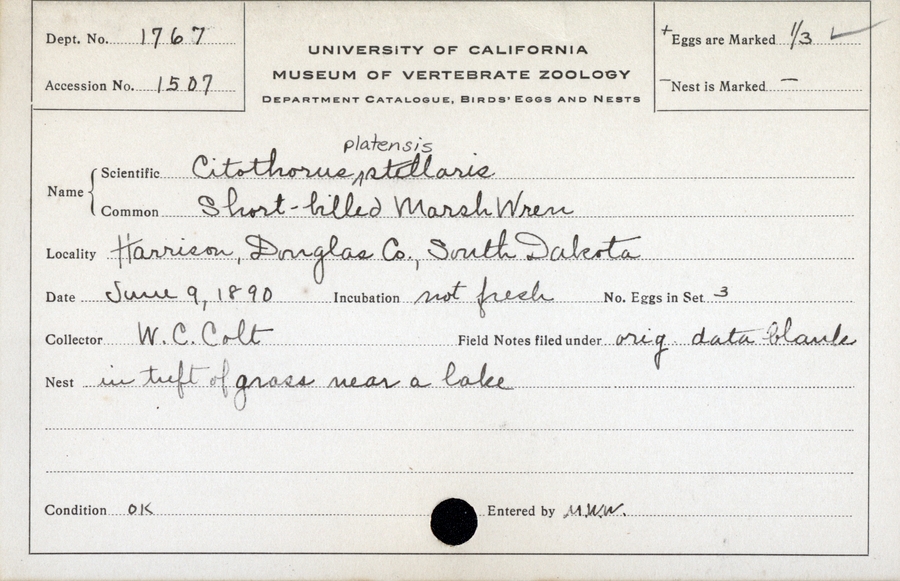 Dept. No. 1767
UNIVERSITY OF CALIFORNIA
MUSEUM OF VERTEBRATE ZOOLOGY
DEPARTMENT CATALOGUE, BIRDS' EGGS AND NESTS
+Eggs are Marked 1/3 ✓
Accession No. 1507
–Nest is Marked –
platensis
Name { Scientific Citothorus ^ stellaris
Common Short-billed Marsh Wren
Locality Harrison, Douglas Co., South Dakota
Date June 9, 1890 Incubation not fresh No. Eggs in Set 3
Collector W. C. Colt Field Notes filed under orig. data blank
Nest in tuft of grass near a lake
Condition OK Entered by M.W.W.